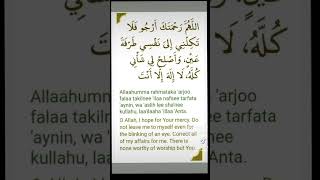 اللَّهُمَّ رَحْمَتَكَ أَرْجُو فَلَا
تَكِلْنِي إِلَى نَفْسِي طَرْفَةَ
عَيْنٍ، وَأَصْلِحْ لِي شَأْنِي
كُلَّهُ، لَا إِلَهَ إِلَّا أَنْتَ
Allaahumma rahmataka 'arjoo
falaa takilnee 'ilaa nafsee tarfata
'aynin, wa 'aslih lee sha'nee
kullahu, laa'ilaaha 'illaa 'Anta.
O Allah, I hope for Your mercy. Do
not leave me to myself even for
the blinking of an eye. Correct all
of my affairs for me. There is
none worthy of worship but You.